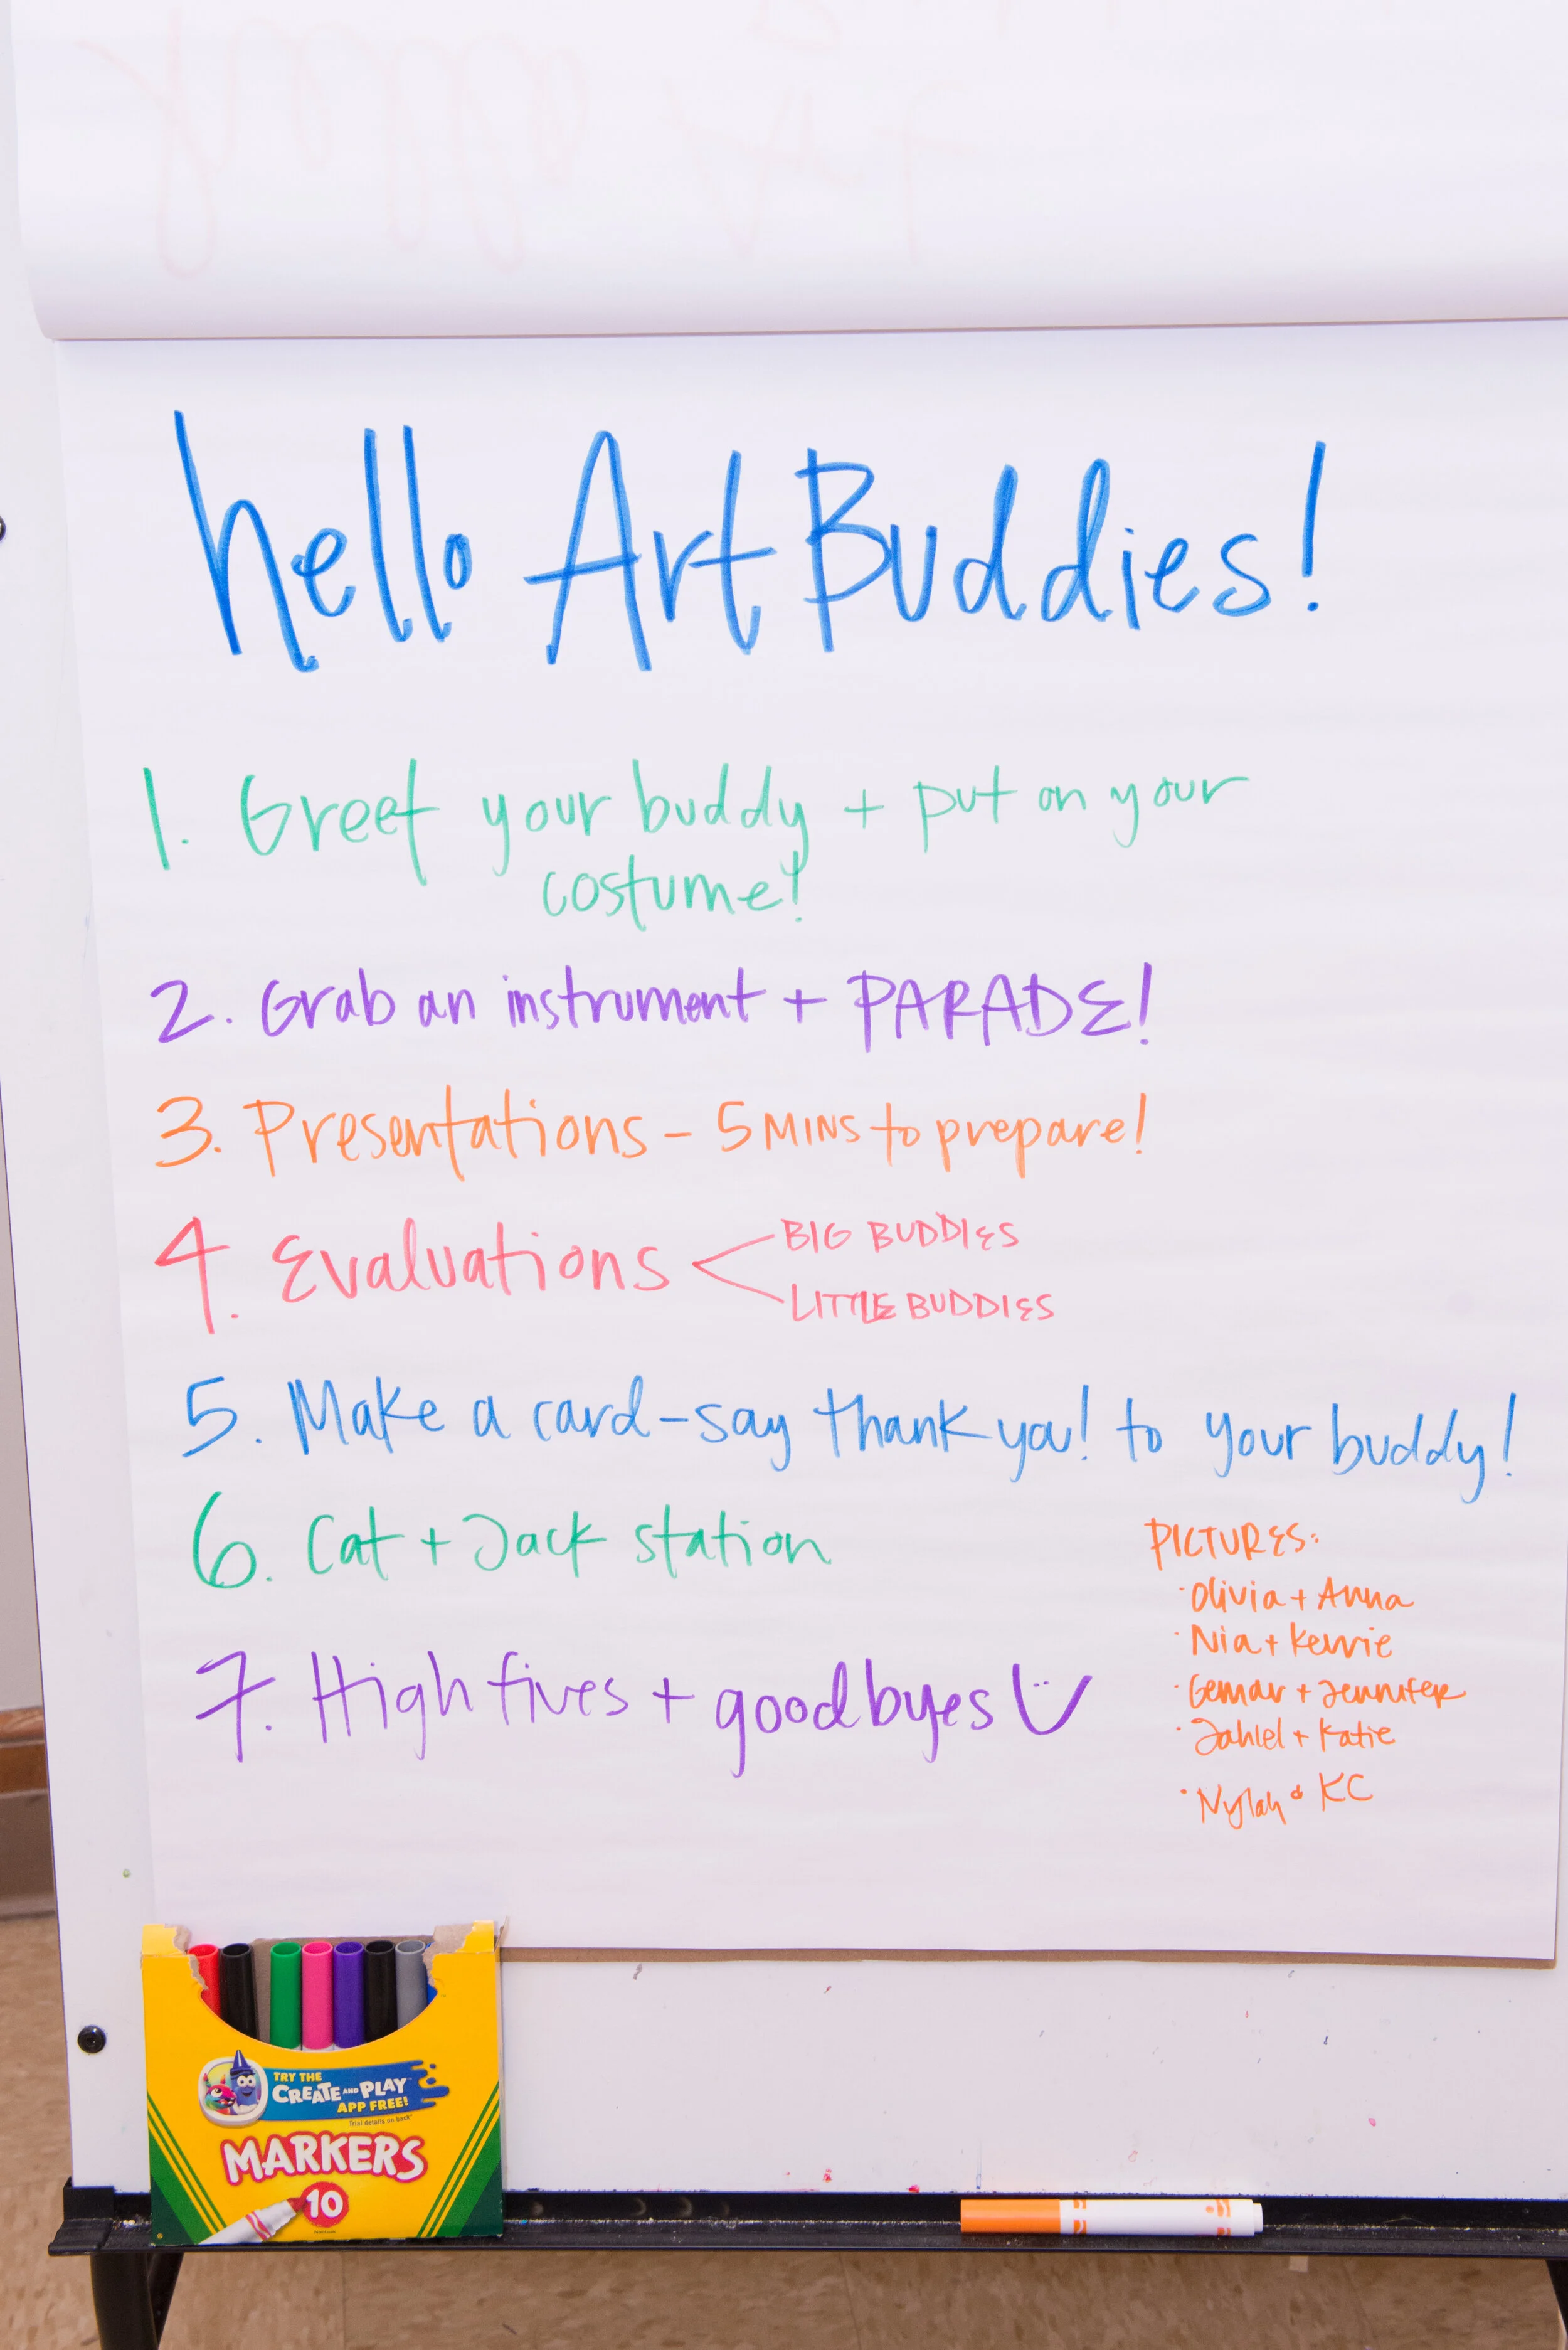 hello Art Buddies!
1. Greet your buddy + put on your
costume!
2. Grab an instrument + PARADE!
3. Presentations - 5 MINS to prepare!
4. Evaluations < BIG BUDDIES
LITTLE BUDDIES
5. Make a card - say thank you! to your buddy!
6. Cat + Jack station
7. High fives + goodbyes
PICTURES:
· Olivia + Anna
· Nia + Kerrie
· Gemar + Jennifer
· Jahlel + Katie
· Nylah & KC
TRY THE
CREATE AND PLAY
APP FREE!
Trial details on back*
MARKERS
10